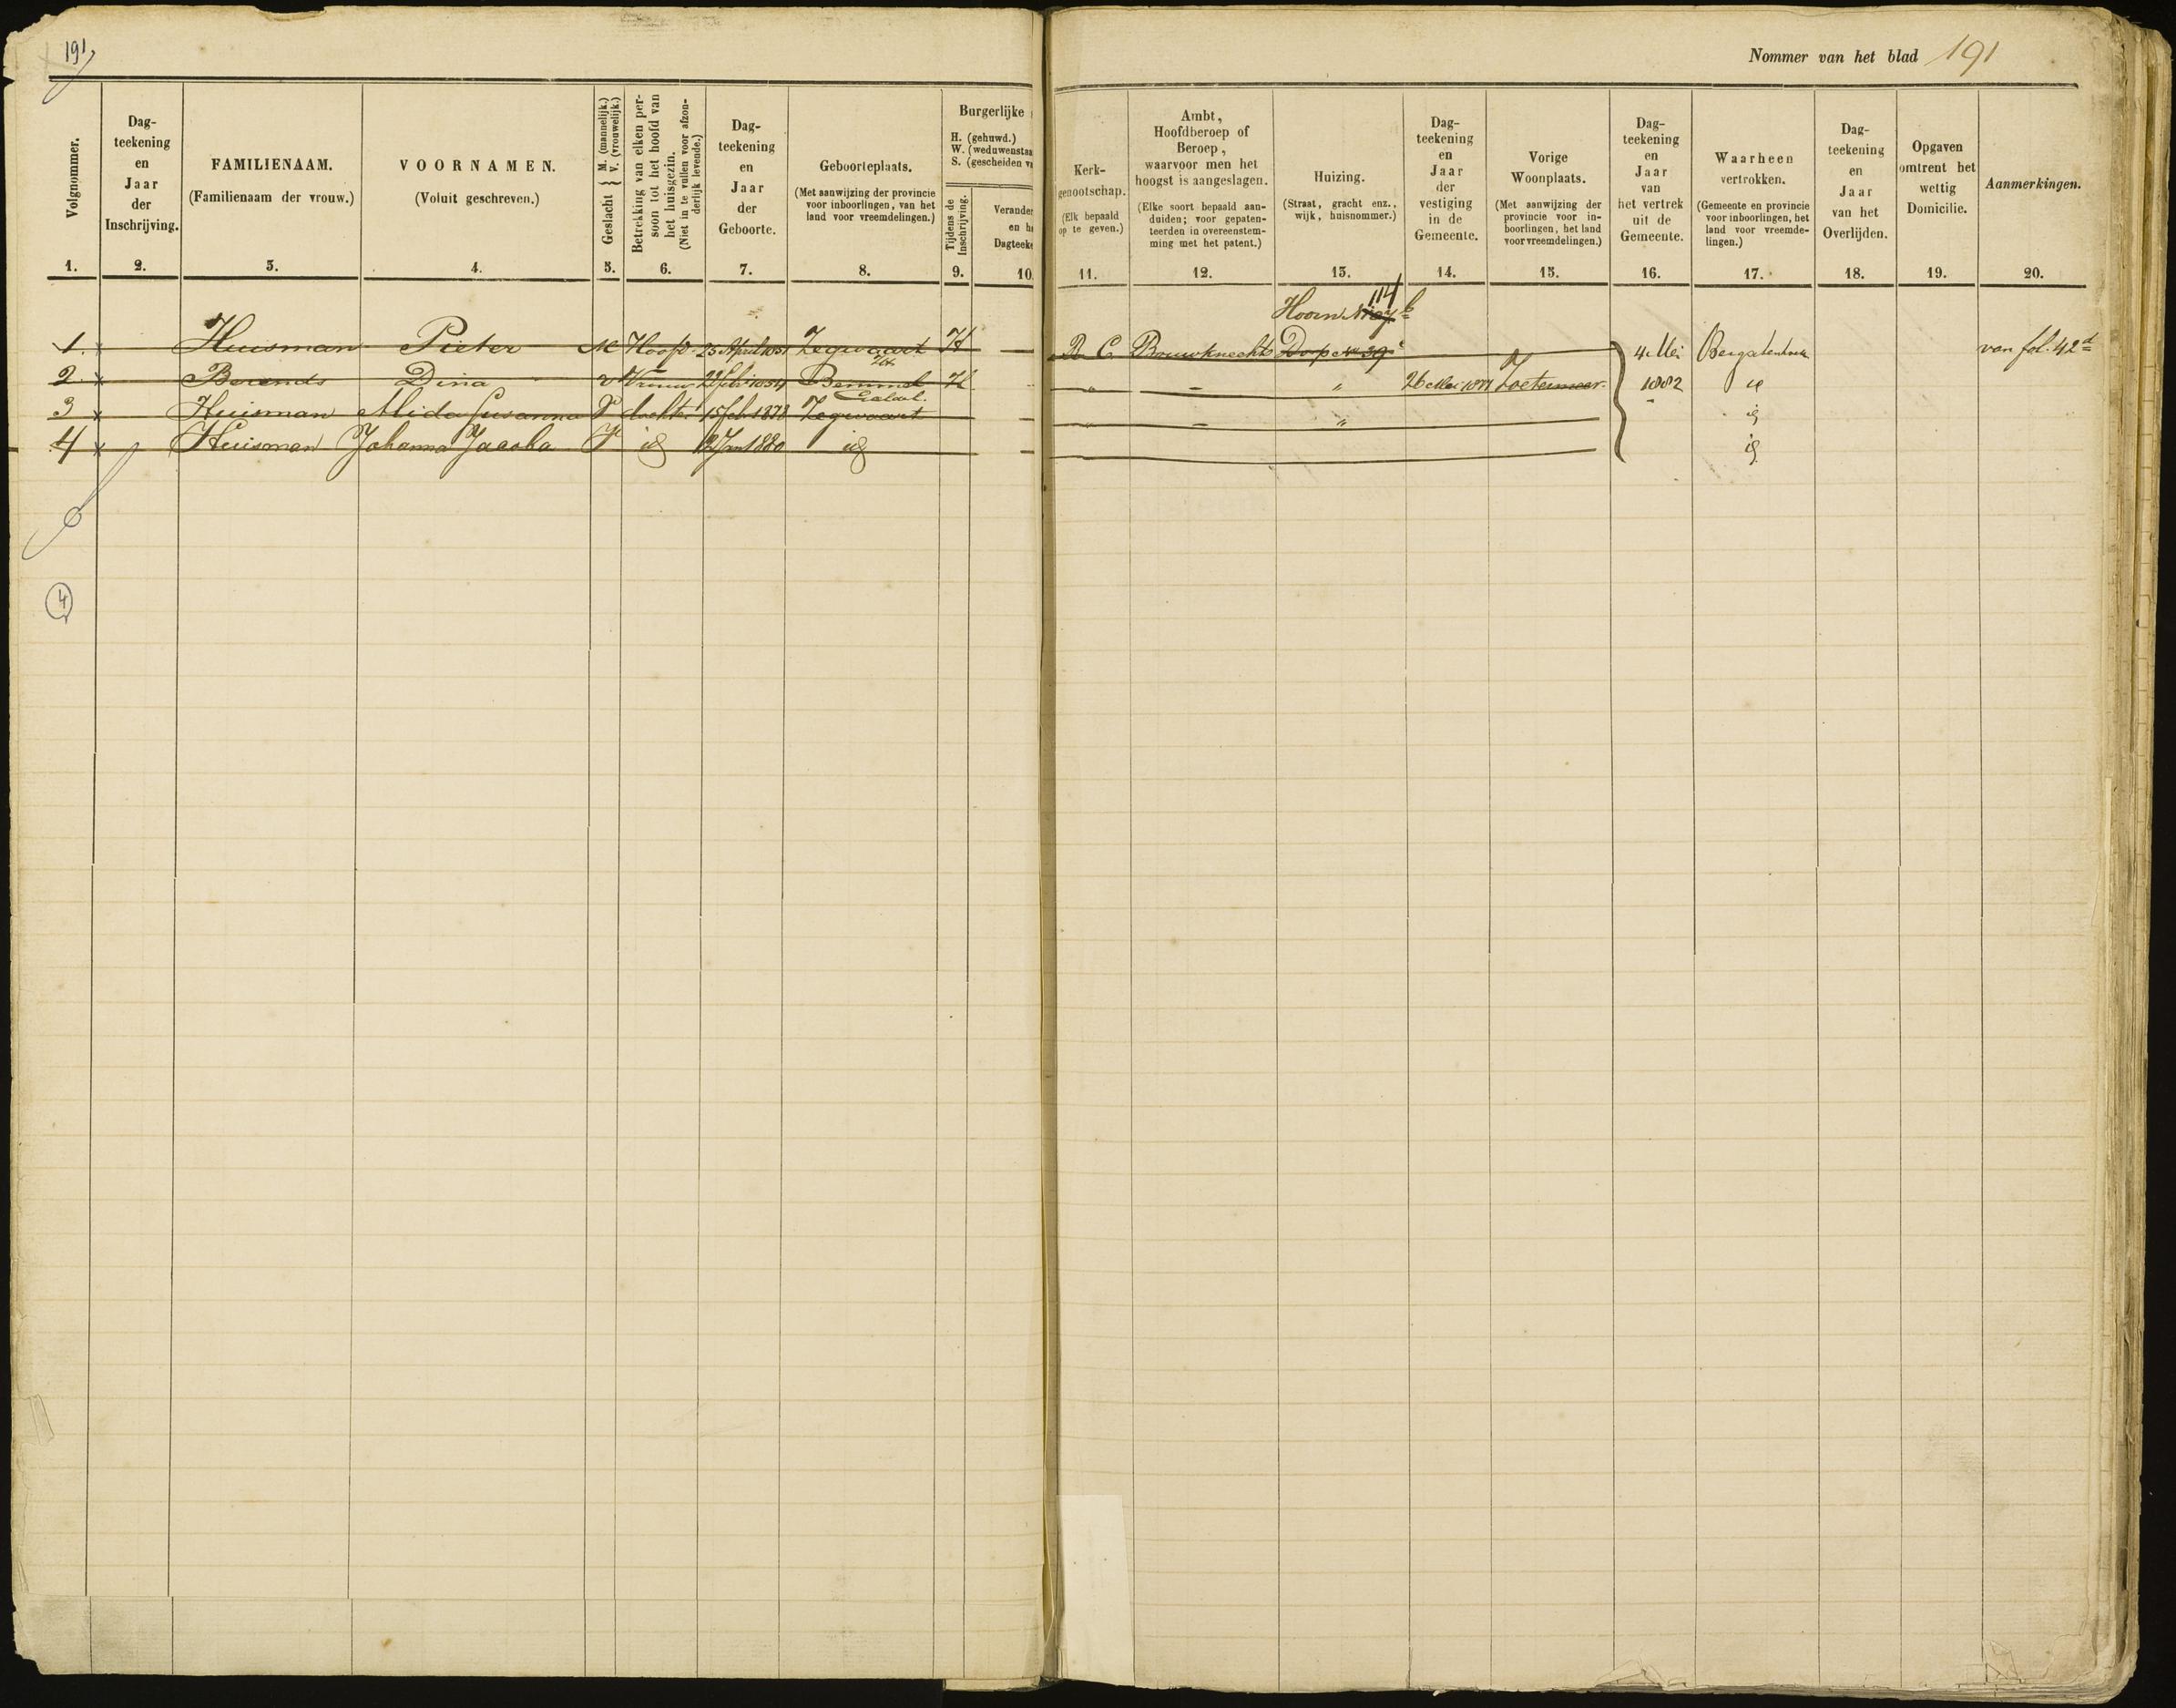 191
Nommer van het blad 191
Volgnommer.
1.
Dag-
teekening
en
Jaar
der
Inschrijving.
2.
FAMILIENAAM.
(Familienaam der vrouw.)
3.
VOORNAMEN.
(Voluit geschreven.)
4.
Geslacht { M. (mannelijk.)
V. (vrouwelijk.)
5.
Betrekking van elken per-
soon tot het hoofd van
het huisgezin.
(Niet in te vullen voor afzon-
derlijk levende.)
6.
Dag-
teekening
en
Jaar
der
Geboorte.
7.
Geboorteplaats.
(Met aanwijzing der provincie
voor inboorlingen, van het
land voor vreemdelingen.)
8.
Burgerlijke
H. (gehuwd.)
W. (weduwenstaa
S. (gescheiden v
Tijdens de
Inschrijving.
9.
Verander
en h
Dagteeke
10
Kerk-
genootschap.
(Elk bepaald
op te geven.)
11.
Ambt,
Hoofdberoep of
Beroep,
waarvoor men het
hoogst is aangeslagen.
(Elke soort bepaald aan-
duiden; voor gepaten-
teerden in overeenstem-
ming met het patent.)
12.
Huizing.
(Straat, gracht enz.,
wijk, huisnommer.)
13.
Dag-
teekening
en
Jaar
der
vestiging
in de
Gemeente.
14.
Vorige
Woonplaats.
(Met aanwijzing der
provincie voor in-
boorlingen, het land
voor vreemdelingen.)
15.
Dag-
teekening
en
Jaar
van
het vertrek
uit de
Gemeente.
16.
Waarheen
vertrokken.
(Gemeente en provincie
voor inboorlingen, het
land voor vreemde-
lingen.)
17.
Dag-
teekening
en
Jaar
van het
Overlijden.
18.
Opgaven
omtrent het
wettig
Domicilie.
19.
Aanmerkingen.
20.
Hoorn 114
1. Huisman Pieter M Hoofd 25 April 1851 Zegwaart H R C Bouwknecht Dorp No 39 4 Mei van fol. 42d
2. Berends Dina V Vrouw Bemmel H " - " 26 Mei 1877 Zoetermeer 1882 id
3 Huisman Alida Susanna V dochter 15 feb 1878 Zegwaart " - " id
4 Huisman Johanna Jacoba V id Jan 1880 id id
4